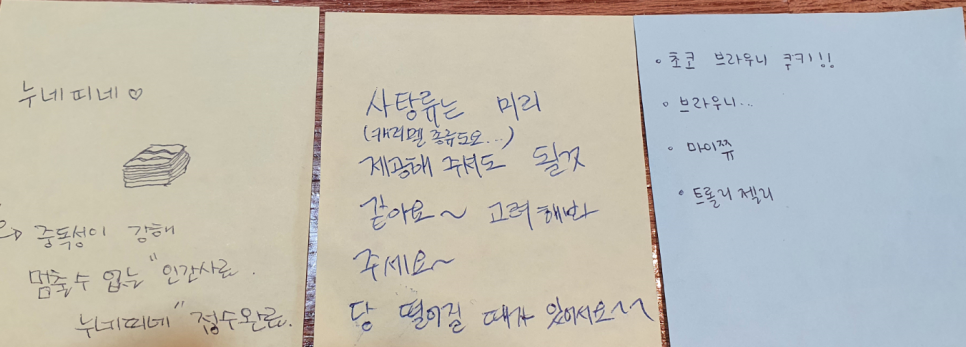 누네띠네 ♡
→ 중독성이 강해
멈출수 없는 "인간사료.
누네띠네" 접수완료.
사탕류는 미리
(캐러멜 종류도요...)
제공해 주셔도 될것
같아요~ 고려해봐
주세요~
당 떨어질 때가 있어서요~~
• 초코 브라우니 쿠키!!
• 브라우니...
• 마이쮸
• 트롤리 젤리